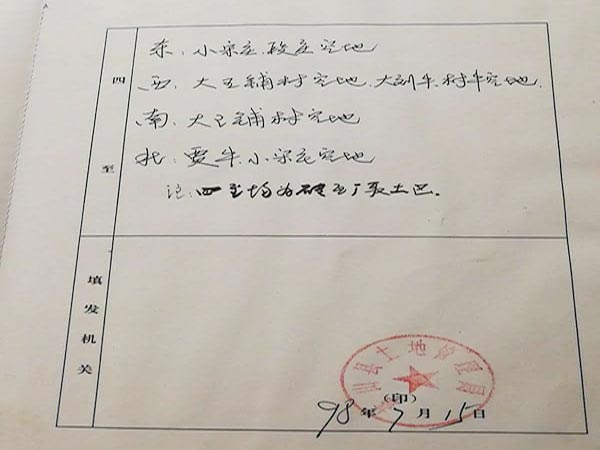 四至
东：小宋庄、段庄空地
西：大王铺村空地、大刘牛村牛空地.
南：大王铺村空地
北：贾牛、小宋庄空地
注：四至均为砖瓦厂取土区.
填发机关
县土地管理局
（印）
98年7月15日